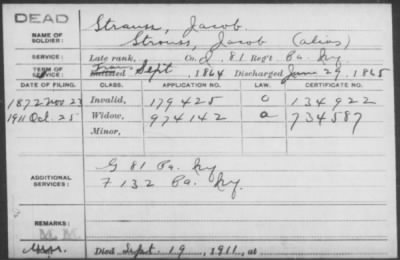 DEAD
NAME OF SOLDIER: Strauss, Jacob
Strouss, Jacob (alias)
SERVICE: Late rank, Co. I, 81 Reg't Pa. Inf.
TERM OF SERVICE: Enlisted From Sept, 1864 Discharged June 29, 1865
DATE OF FILING. CLASS. APPLICATION NO. LAW. CERTIFICATE NO.
1872 Nov 23 Invalid, 179425 O 134922
1911 Oct 25 Widow, 974142 a 734587
Minor,
ADDITIONAL SERVICES: G 81 Pa. Inf
F 132 Pa. Inf.
REMARKS:
M. M.
Died Sept 19, 1911, at